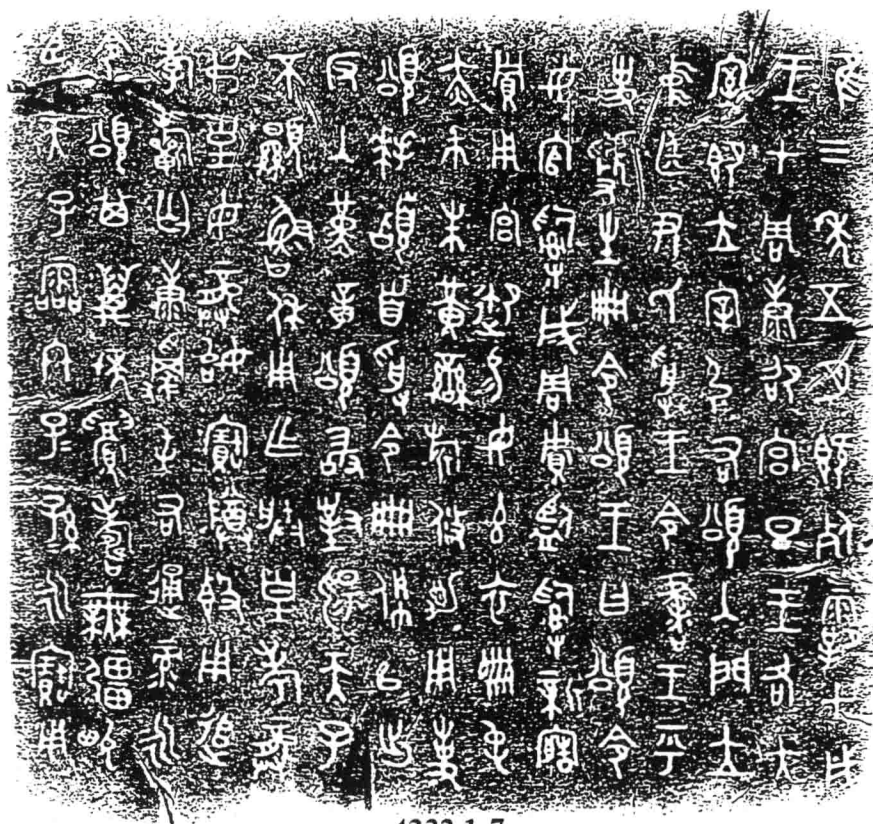 隹三年五月既死霸甲戌
王才周康卲宮旦王各大
室即立宰引右頌入門立
中廷尹氏受王令書王乎
史虢生冊令頌王曰頌令
女官𤔲成周貯監𤔲新造
貯用宮御易女玄衣黹屯
赤巿朱黃䜌旂攸勒用事
頌拜𩒨首受令冊佩以出
反入堇章頌敢對揚天子
不顯魯休用乍朕皇考龏
弔皇母龏姒寶尊簋用追
孝𣄨匃康𠖎屯右通彔永
令頌其萬年眉壽無疆畯
臣天子霝冬子=孫=永寶用